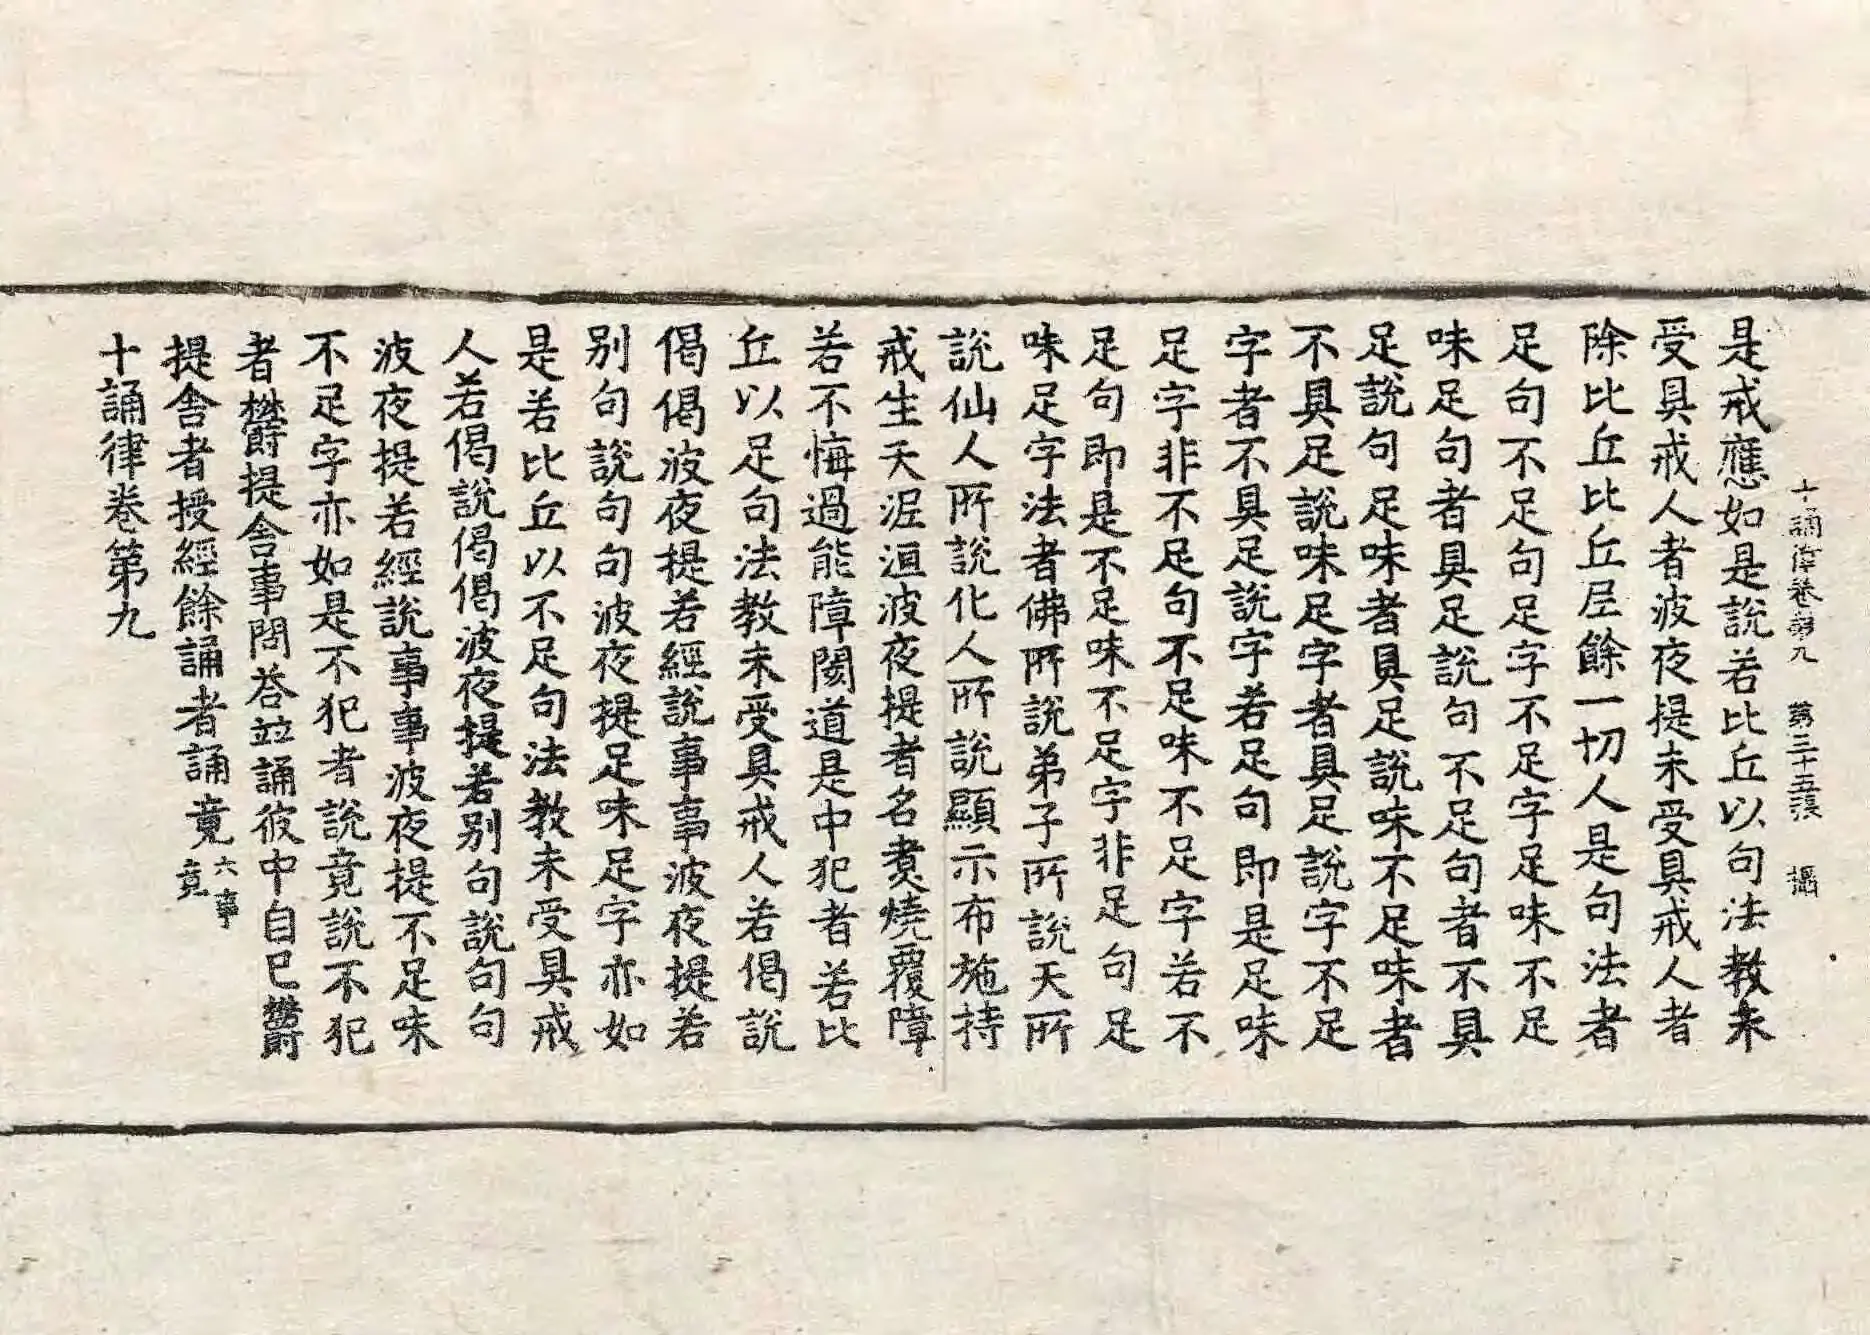 十誦律卷第九　第三十五張　攝
是戒應如是說若比丘以句法教未
受具戒人者波夜提未受具戒人者
除比丘比丘尼餘一切人是句法者
足句不足句足字不足字足味不足
味足句者具足說句不足句者不具
足說句足味者具足說味不足味者
不具足說味足字者具足說字不足
字者不具足說字若足句即是足味
足字非不足句不足味不足字若不
足句即是不足味不足字非足句足
味足字法者佛所說弟子所說天所
說仙人所說化人所說顯示布施持
戒生天泥洹波夜提者名煑燒覆障
若不悔過能障閡道是中犯者若比
丘以足句法教未受具戒人若偈說
偈偈波夜提若經說事事波夜提若
別句說句句波夜提足味足字亦如
是若比丘以不足句法教未受具戒
人若偈說偈偈波夜提若別句說句句
波夜提若經說事事波夜提不足味
不足字亦如是不犯者說竟說不犯
者欝提舍事問荅竝誦彼中自已欝
提舍者授經餘誦者誦竟六事竟
十誦律卷第九